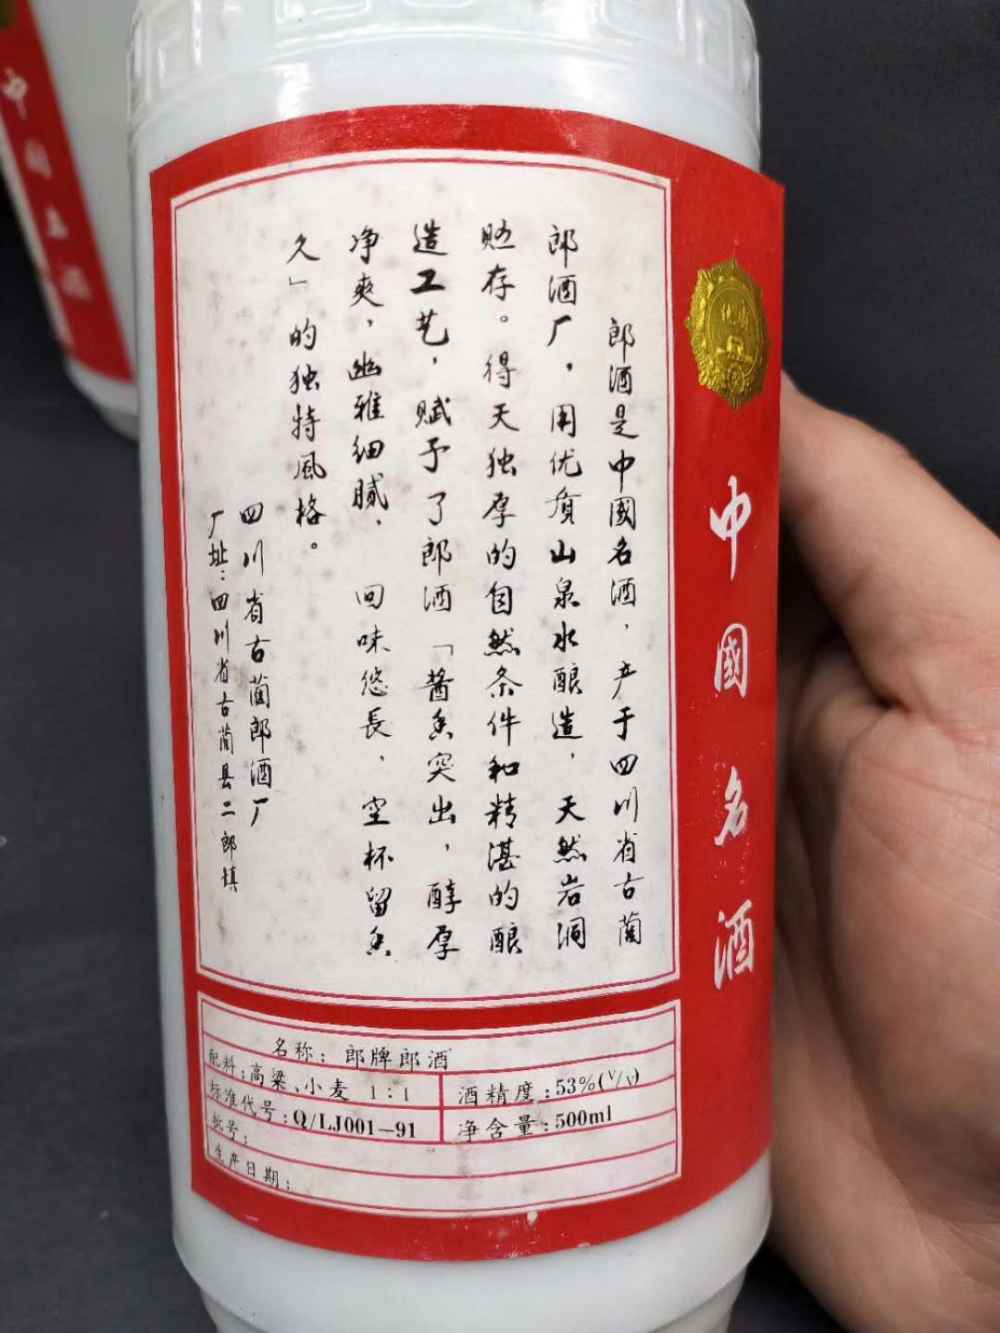 郎酒是中國名酒，产于四川省古蔺
郎酒厂，用优质山泉水酿造，天然岩洞
贮存。得天独厚的自然条件和精湛的酿
造工艺，赋予了郎酒「酱香突出，醇厚
净爽，幽雅细腻，回味悠長，空杯留香
久」的独特風格。
四川省古蔺郎酒厂
厂址：四川省古蔺县二郎镇
中國名酒
名称：郎牌郎酒
配料：高粱、小麦 1：1
酒精度：53%(V/V)
标准代号：Q/LJ001-91
净含量：500ml
批号：
生产日期：
中國名酒